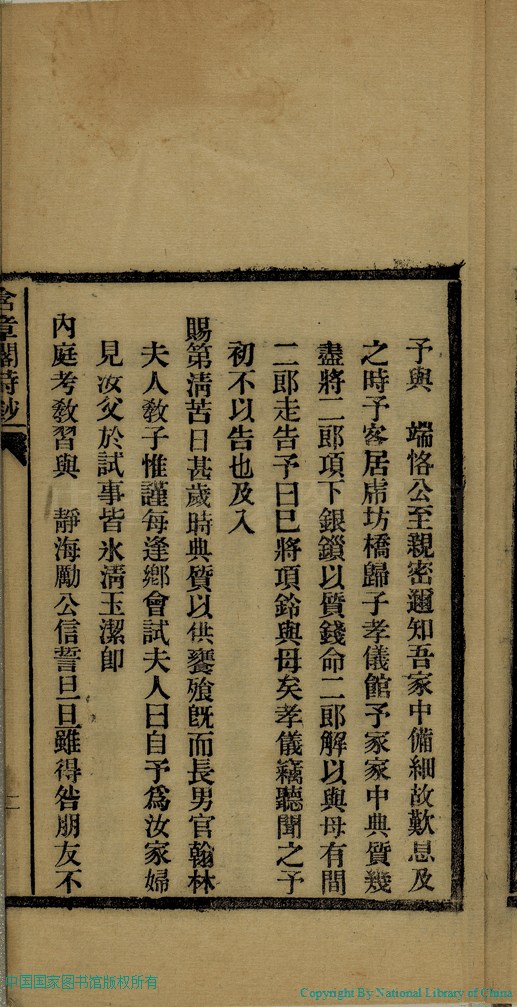 予與　端恪公至親密邇知吾家中備細故歎息及
之時予客居席坊橋歸子孝儀館予家家中典質幾
盡將二郎項下銀鎖以質錢命二郎解以與母有間
二郎走告予曰巳將項鈴與母矣孝儀竊聽聞之予
初不以告也及入
賜第清苦日甚歲時典質以供饔飧旣而長男官翰林
夫人敎子惟謹每逢鄉會試夫人曰自予爲汝家婦
見汝父於試事皆氷清玉潔卽
內庭考敎習與　靜海勵公信誓旦旦雖得咎朋友不
含章閣詩鈔
二
中国国家图书馆版权所有
Copyright By National Library of China